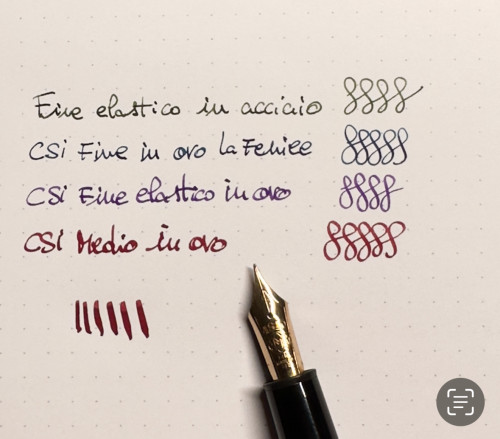 Fine elastico in acciaio
CSi Fine in oro la Fenice
CSi Fine elastico in oro
CSi Medio in oro